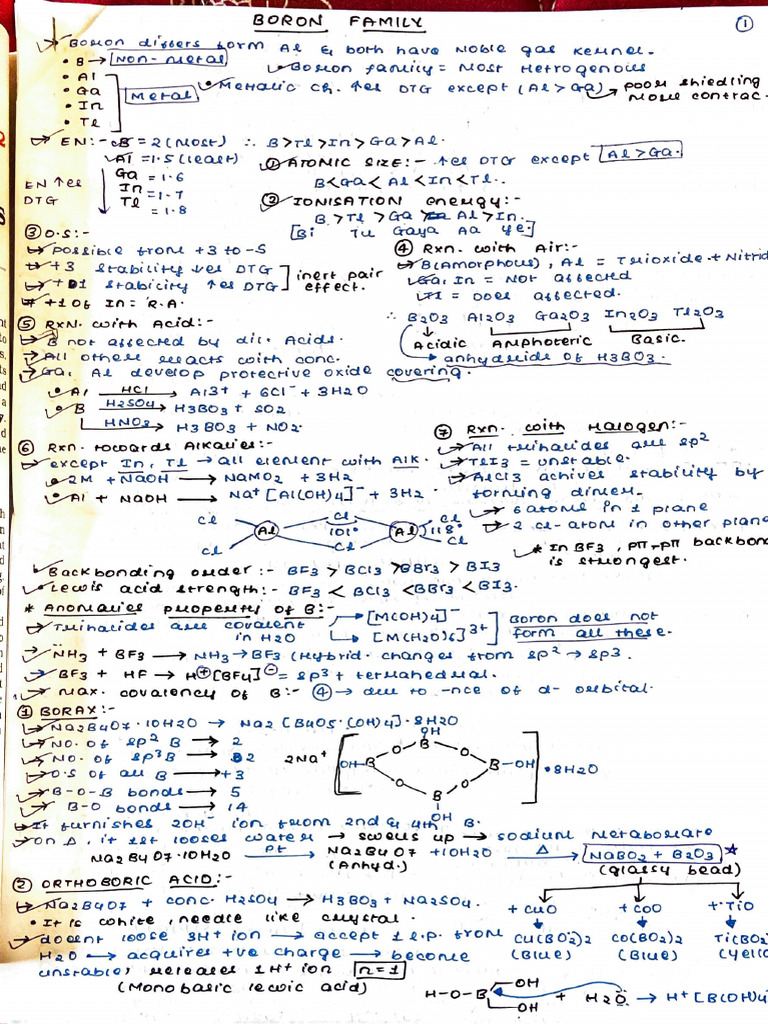 BORON FAMILY
1
Boron differs form Al & both have Noble gas kernel.
• B → Non-metal
• Boron family = Most Hetrogenous
• Al
• Ga
• In
• Tl
Metal
• Metallic ch. ↑es DTG except (Al > Ga) → poor shiedling
more contrac.
EN:- B = 2 (Most) ∴ B>Tl>In>Ga>Al.
Al = 1.5 (least)
Ga = 1.6
In = 1.7
Tl = 1.8
EN ↑es
DTG
① ATOMIC SIZE:- ↑es DTG except Al>Ga.
B<Ga<Al<In<Tl.
② IONISATION energy:-
B > Tl > Ga > Al > In.
[Bi Tu Gaya Aa ye.]
③ O.S:-
possible from +3 to -5
+3 stability ↓es DTG
+1 stability ↑es DTG
inert pair
effect.
* +1 of In = R.A.
④ Rxn. with Air:-
B(Amorphous), Al = Trioxide + Nitrid
Ga, In = Not affected
Tl = Does affected.
∴ B2O3 Al2O3 Ga2O3 In2O3 Tl2O3
Acidic Amphoteric Basic.
anhydride of H3BO3.
⑤ RXN. with Acid:-
B not affected by dil. Acids.
All others reacts with conc.
Ga, Al develop protective oxide covering.
• Al HCl → Al3+ + 6Cl- + 3H2O
• B H2SO4 → H3BO3 + SO2
HNO3 → H3BO3 + NO2.
⑥ Rxn. towards Alkalies:-
except In, Tl → all element with Alk.
• 2M + NaOH → NaMO2 + 3H2
• Al + NaOH → Na+[Al(OH)4]- + 3H2
⑦ Rxn. with Halogen:-
All trihalides are sp2
TlI3 = unstable.
AlCl3 achives stability by
forming dimer.
6 atoms in 1 plane
2 Cl-atom in other plane
* In BF3, pπ-pπ backbond
is strongest.
Cl Cl Cl
Al 101° Al 118°
Cl Cl Cl
• Backbonding order:- BF3 > BCl3 > BBr3 > BI3
• Lewis acid strength:- BF3 < BCl3 < BBr3 < BI3.
* Anomalies property of B:-
Trihalides are covalent
in H2O
[M(OH)4]-
[M(H2O)6]3+
Boron does not
form all these.
N̈H3 + BF3 → NH3→BF3 (Hybrid. changes from sp2 → sp3.
BF3 + HF → H⊕[BF4]⊖ = sp3 + tetrahedral.
Max. covalency of B:- ④ → due to -nce of d-orbital.
① BORAX:-
Na2B4O7·10H2O → Na2[B4O5·(OH)4]·8H2O
No. of sp2 B → 2
No. of sp3 B → 2
O.S of all B → +3
B-O-B bonds → 5
B-O bonds → 14
2Na+
OH
O B O
OH-B B-OH
O B O
OH
·8H2O
It furnishes 2OH- ion from 2nd & 4th B.
On Δ, it 1st looses water → swells up → sodium metaborate
Na2B4O7·10H2O Pt → Na2B4O7 + 10H2O Δ → NaBO2 + B2O3 ☆
(Anhyd.)
(glassy bead)
② ORTHOBORIC ACID:-
Na2B4O7 + conc. H2SO4 → H3BO3 + Na2SO4.
• It is white, needle like crystal.
+ CuO + CoO + TiO
Cu(BO2)2 Co(BO2)2 Ti(BO2
(Blue) (Blue) (Yello
doesnt loose 3H+ ion → accept 1 l.p. from
H2O → acquires +ve charge → become
unstable, releases 1H+ ion n=1
(Monobasic lewic acid)
H-O-B OH OH + H2Ö → H+[B(OH)4